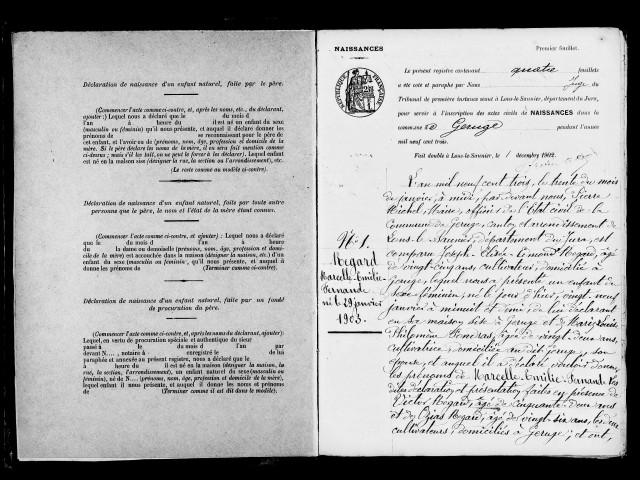 Déclaration de naissance d'un enfant naturel, faite par le père.
(Commencer l'acte comme ci-contre, et, après les noms, etc., du déclarant,
ajouter :) Lequel nous a déclaré que le du mois d
l'an à heure du il est né un enfant du sexe
(masculin ou féminin) qu'il nous présente, et auquel il déclare donner les
prénoms de se reconnaissant pour le père de
cet enfant, et l'avoir eu de (prénoms, nom, âge, profession et domicile de la
mère). Si le père déclare les noms de la mère, il en sera fait mention comme
ci-dessus ; mais s'il les tait, on ne peut le forcer à les déclarer). Lequel enfant
est né en la maison sise (désigner la rue, la section ou l'arrondissement), etc.
(Le reste comme au modèle ci-contre).
Déclaration de naissance d'un enfant naturel, faite par toute autre
personne que le père, le nom et l'état de la mère étant connus.
(Commencer l'acte comme ci-contre, et ajouter :) Lequel nous a déclaré
que le du mois d l'an à heure
du la dame ou demoiselle (prénoms, nom, âge, profession, domi-
cile de la mère), est accouchée dans la maison (désigner la maison, etc.) d'un
enfant du sexe (masculin ou féminin), qu'il nous présente, et auquel il donne
les prénoms de (Terminer comme ci-contre).
Déclaration de naissance d'un enfant naturel, faite par un fondé
de procuration du père.
(Commencer l'acte comme ci-contre, et, après les noms du déclarant, ajouter):
Lequel, en vertu de procuration spéciale et authentique du sieur
passé à le du mois d an par-
devant N..., notaire à enregistré le de là
paraphée et annexée au présent registre, nous a déclaré que le
heure du il est né en la maison (désigner la maison, la
rue, la section, l'arrondissement), un enfant naturel du sexe (masculin ou
féminin), né de N... (prénoms, âge, profession et domicile de la mère), lequel
lequel enfant il nous présente, et auquel il donne les nom et prénoms
de (Terminer comme il est dit dans le modèle).
NAISSANCES
Premier feuillet.
RÉPUBLIQUE FRANÇAISE
Le présent registre contenant quatre feuillets
a été coté et paraphé par Nous Juge du
Tribunal de première instance séant à Lons-le-Saunier, département du Jura,
pour servir à l'inscription des actes civils de NAISSANCES dans la
commune de Geruge pendant l'année
mil neuf cent trois.
Fait double à Lons-le-Saunier, le 1 décembre 1902.
N° 1.
Bogard
Marcelle-Emilie-
Fernande
né le 29 janvier
1903.
L'an mil neuf cent trois, le trente du mois
de janvier, à midi, par devant nous, Pierre
Michel, Maire, officier de l'Etat civil de la
Commune de Geruge, canton et arrondissement de
Lons-le-Saunier, département du Jura, est
comparu Joseph Elisée Bogard, âgé
de vingt-cinq ans, cultivateur, domicilié à
Geruge, lequel nous a présenté un enfant du
sexe féminin, né le jour d'hier, vingt-neuf
janvier à minuit et demi, de lui déclarant
en sa maison sise à Geruge et de Marie Louise
Philomène âgée de vingt-deux ans,
cultivatrice, domiciliée au dit Geruge, son
épouse, et auquel il a déclaré vouloir donner
les prénoms de Marcelle-Emilie-Fernande. Les
dites déclaration et présentation faites en présence de
Victor Bogard, âgé de cinquante-deux ans
et de Ozias Bogard, âgé de vingt-six ans, les deux
cultivateurs, domiciliés à Geruge ; et ont,